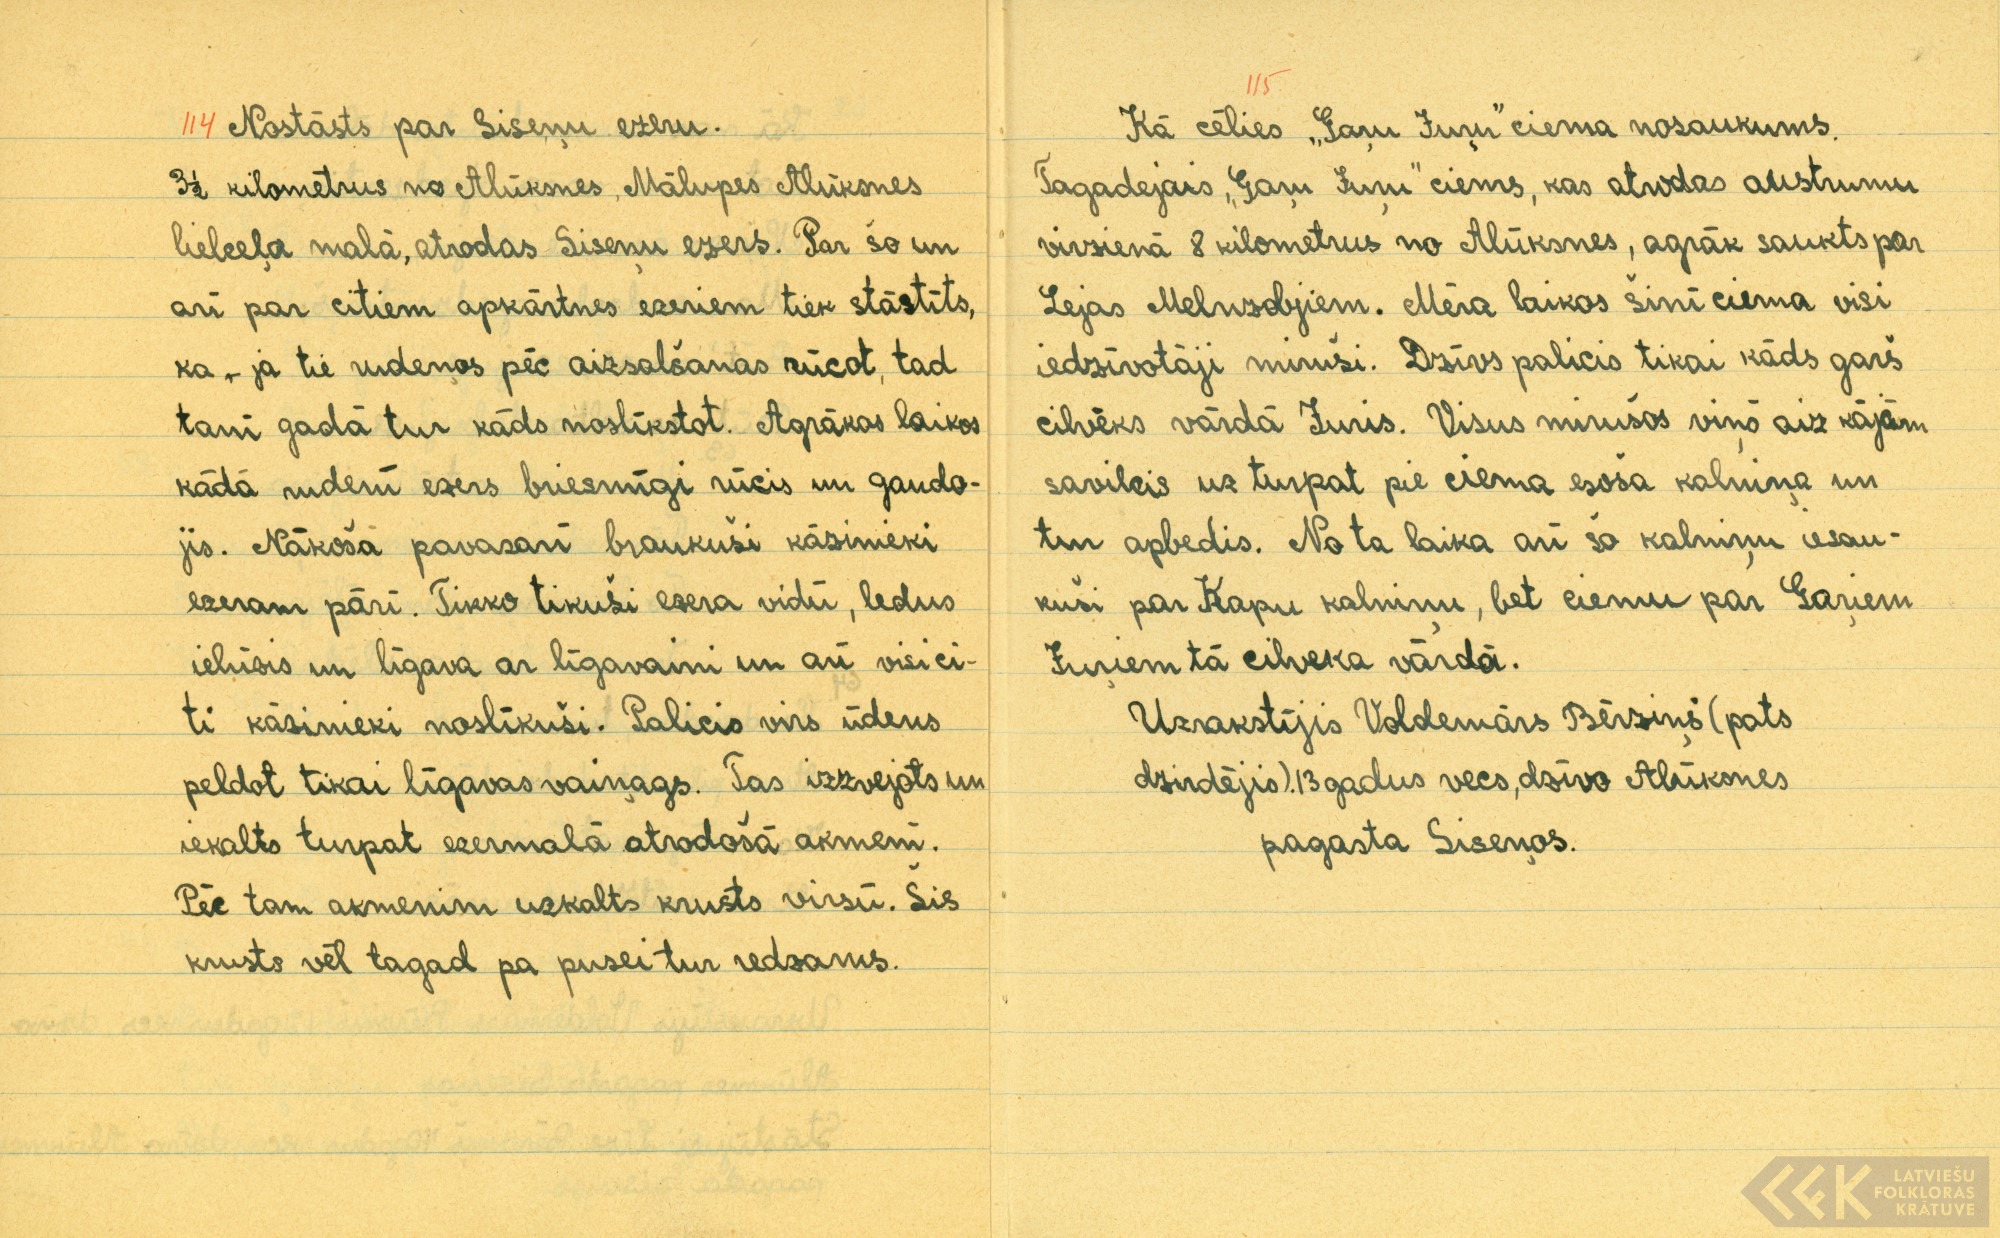 114 Nostāsts par Siseņu ezeru.
3½ kilometrus no Alūksnes, Mālupes Alūksnes
lielceļa malā, atrodas Siseņu ezers. Par šo un
arī par citiem apkārtnes ezeriem tiek stāstīts,
ka, ja tie rudeņos pēc aizsalšanas rūcot, tad
tanī gadā tur kāds noslīkstot. Agrākos laikos
kādā rudenī ezers briesmīgi rūcis un gaudo-
jis. Nākošā pavasarī braukuši kāzinieki
ezeram pāri. Tikko tikuši ezera vidū, ledus
ielūsis un līgava ar līgavaini un arī visi ci-
ti kāzinieki noslīkuši. Palicis virs ūdens
peldot tikai līgavas vaiņags. Tas izzvejots un
iekalts turpat ezermalā atrodošā akmenī.
Pēc tam akmenim uzkalts krusts virsū. Šis
krusts vēl tagad pa pusei tur redzams.
115
Kā cēlies „Gaŗu Juŗu" ciema nosaukums.
Tagadejais „Gaŗu Juŗu" ciems, kas atrodas austrumu
virzienā 8 kilometrus no Alūksnes, agrāk saukts par
Lejas Melnzobjiem. Mēra laikos šinī ciema visi
iedzīvotāji miruši. Dzīvs palicis tikai kāds garš
cilvēks vārdā Juris. Visus mirušos viņš aiz kājām
savilcis uz turpat pie ciema esoša kalniņa un
tur apbedis. No ta laika arī šo kalniņu iesau-
kuši par Kapu kalniņu, bet ciemu par Gaŗiem
Juŗiem tā cilveka vārdā.
Uzrakstījis Voldemārs Bērziņš (pats
dzirdējis). 13 gadus vecs, dzīvo Alūksnes
pagasta Siseņos.
LATVIEŠU
FOLKLORAS
KRĀTUVE